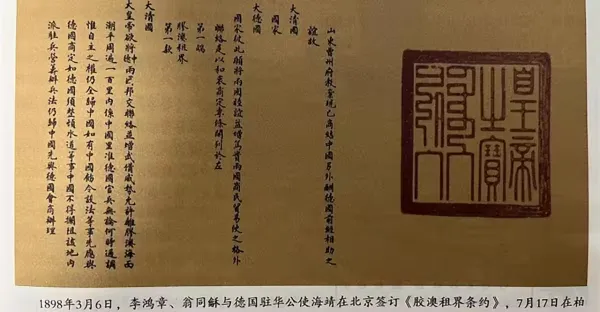 山東曹州府教案現已商結中國另外酬德國前經相助之
誼故
大清國
國家
大德國
國家彼此願將兩國睦誼並增篤實兩國商民貿易使之格外
聯絡是以和衷商定專條開列於左
第一端
膠澳租界
第一款
大清國
大皇帝欲將中德兩國邦交聯絡並增武備威勢允許離膠澳海面
潮平周遍一百里內係中國里准德國官兵無論何時過調
惟自主之權仍全歸中國如有中國飭令設法等事先應與
德國商定如德國須整頓水道等事中國不得攔阻該地內
派駐兵營籌辦兵法仍歸中國先與德國會商辦理
皇帝之寶
1898年3月6日，李鸿章、翁同龢与德国驻华公使海靖在北京签订《胶澳租界条约》，7月17日在柏